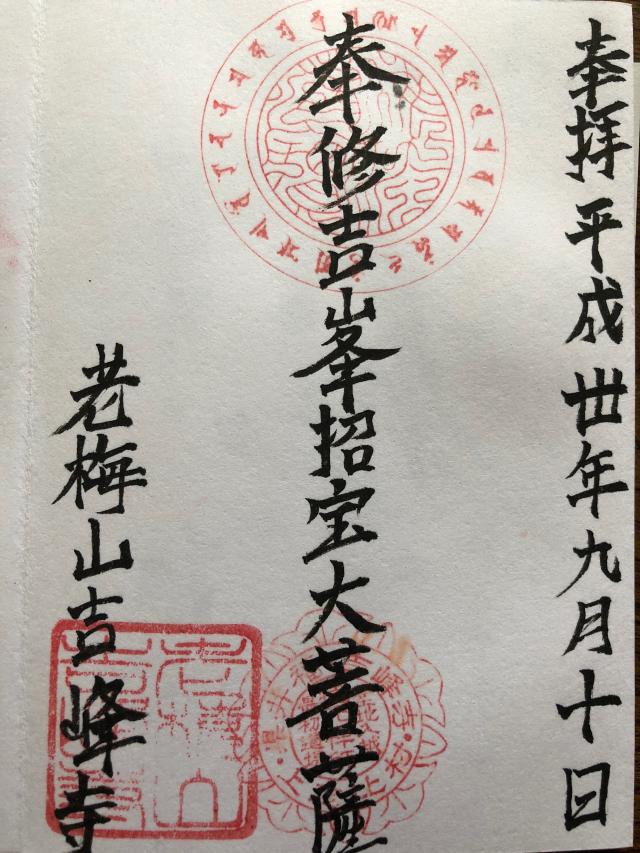 奉拝平成丗年九月十日
奉修吉峯招宝大菩薩
老梅山吉峰寺